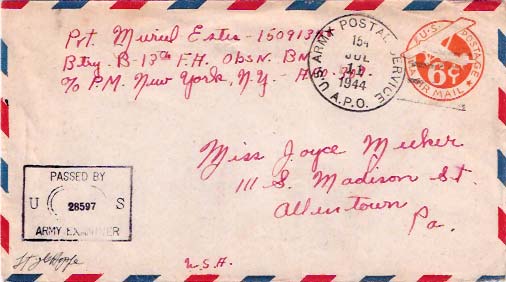 Pvt. Muriel Estes - 15091374
Btry. B-13th F.A. Obsn. Bn.
c/o P.M. New York, N.Y. -
U.S. ARMY POSTAL SERVICE
JUL
11
1944
A.P.O.
U.S. POSTAGE
6¢
AIR MAIL
Miss Joyce Meeker
111 S. Madison St.
Allentown
Pa.
PASSED BY
U 28597 S
ARMY EXAMINER
U.S.A.